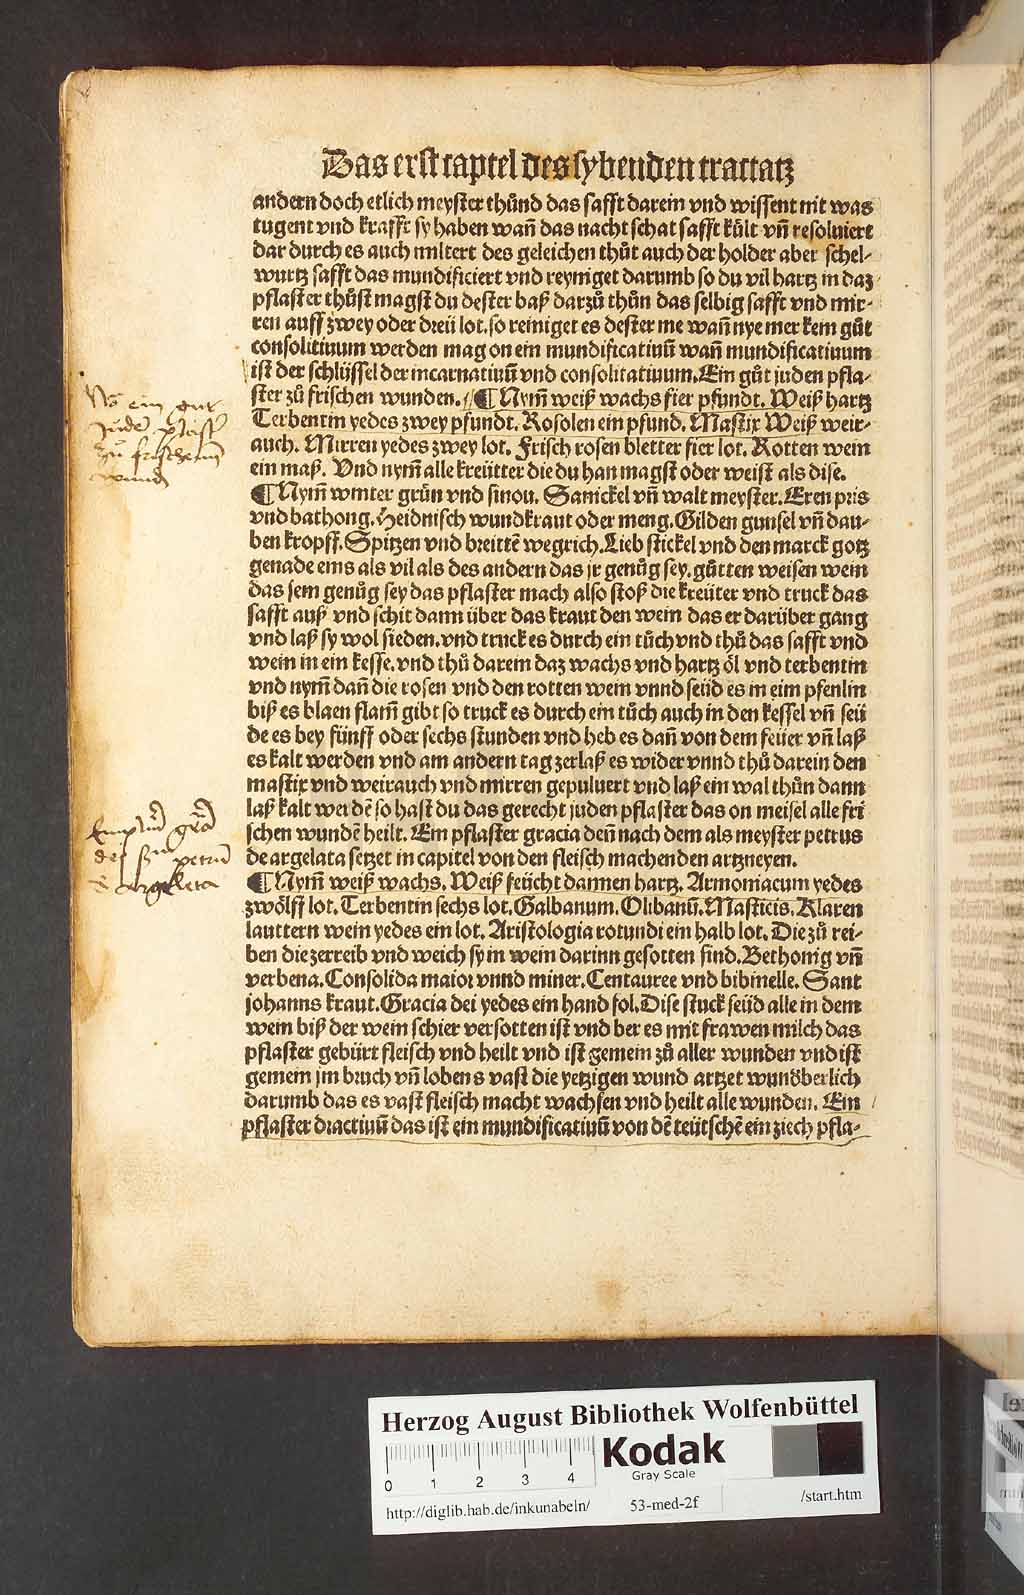 Das erst captel des sybenden tractatz
andern doch etlich meyster thůnd das safft darein vnd wissent nit was
tugent vnd krafft sy haben wañ das nacht schat safft kůlt vñ resoluiert
dar durch es auch miltert des geleichen thůt auch der holder aber schel⸗
wurtz safft das mundificiert vnd reyniget darumb so du vil hartz in daz
pflaster thůst magst du dester baß darzů thůn das selbig safft vnd mir⸗
ren auff zwey oder dreü lot. so reiniget es dester me wañ nye mer kein gůt
consolitiuum werden mag on ein mundificatiuũ wañ mundificatiuum
ist der schlüssel der incarnatiuũ vnd consolitatiuum. Ein gůt juden pfla⸗
ster zů frischen wunden. ¶ Nym̃ weiß wachs fier pfundt. Weiß hartz
Terbentin yedes zwey pfundt. Rosolen ein pfund. Mastix Weiß weir⸗
auch. Mirren yedes zwey lot. Frisch rosen bletter fier lot. Rotten wein
ein maß. Vnd nym̃ alle kreütter die du han magst oder weist als dise.
¶ Nym̃ winter grůn vnd sinou. Sanickel vñ walt meyster. Eren pris
vnd bathong. Heidnisch wundkraut oder meng. Gilden gunsel vñ dau⸗
ben kropff. Spitzen vnd breittẽ wegrich. Lieb stickel vnd den marck gotz
genade eins als vil als des andern das jr genůg sey. gůtten weisen wein
das sein genůg sey das pflaster mach also stoß die kreüter vnd truck das
safft auß vnd schit dann über das kraut den wein das er darüber gang
vnd laß sy wol sieden. vnd truck es durch ein tůch vnd thů das safft vnd
wein in ein kesse. vnd thů darein daz wachs vnd hartz öl vnd terbentin
vnd nym̃ dañ die rosen vnd den rotten wein vnnd seüd es in eim pfenlin
biß es blaen flam̃ gibt so truck es durch ein tůch auch in den kessel vñ seü
de es bey fünff oder sechs stunden vnd heb es dañ von dem feüer vñ laß
es kalt werden vnd am andern tag zerlaß es wider vnnd thů darein den
mastix vnd weirauch vnd mirren gepuluert vnd laß ein wal thůn dann
laß kalt werdẽ so hast du das gerecht juden pflaster das on meisel alle fri
schen wundẽ heilt. Ein pflaster gracia deñ nach dem als meyster petrus
de argelata setzet in capitel von den fleisch machenden artzneyen.
¶ Nym̃ weiß wachs. Weiß feücht dannen hartz. Armoniacum yedes
zwölff lot. Terbentin sechs lot. Galbanum. Olibanũ. Masticis. Klaren
lauttern wein yedes ein lot. Aristologia rotundi ein halb lot. Die zů rei⸗
ben die zerreib vnd weich sy in wein darinn gesotten sind. Bethonig vñ
verbena. Consolida maior vnnd miner. Centauree vnd bibinelle. Sant
johanns kraut. Gracia dei yedes ein hand fol. Dise stuck seüd alle in dem
wein biß der wein schier versotten ist vnd ber es mit frawen milch das
pflaster gebürt fleisch vnd heilt vnd ist gemein zů aller wunden vnd ist
gemein jm bruch vñ lobens vast die yetzigen wund artzet wunđberlich
darumb das es vast fleisch macht wachsen vnd heilt alle wunden. Ein
pflaster diactiuũ das ist ein mundificatiuũ von dẽ teütschẽ ein ziech pfla⸗
ein gut
Juden plaster
zů frischenn
wunden
petrũ
de argelleta
Herzog August Bibliothek Wolfenbüttel
Kodak
Gray Scale
0 1 2 3 4
http://diglib.hab.de/inkunabeln/ 53-med-2f /start.htm